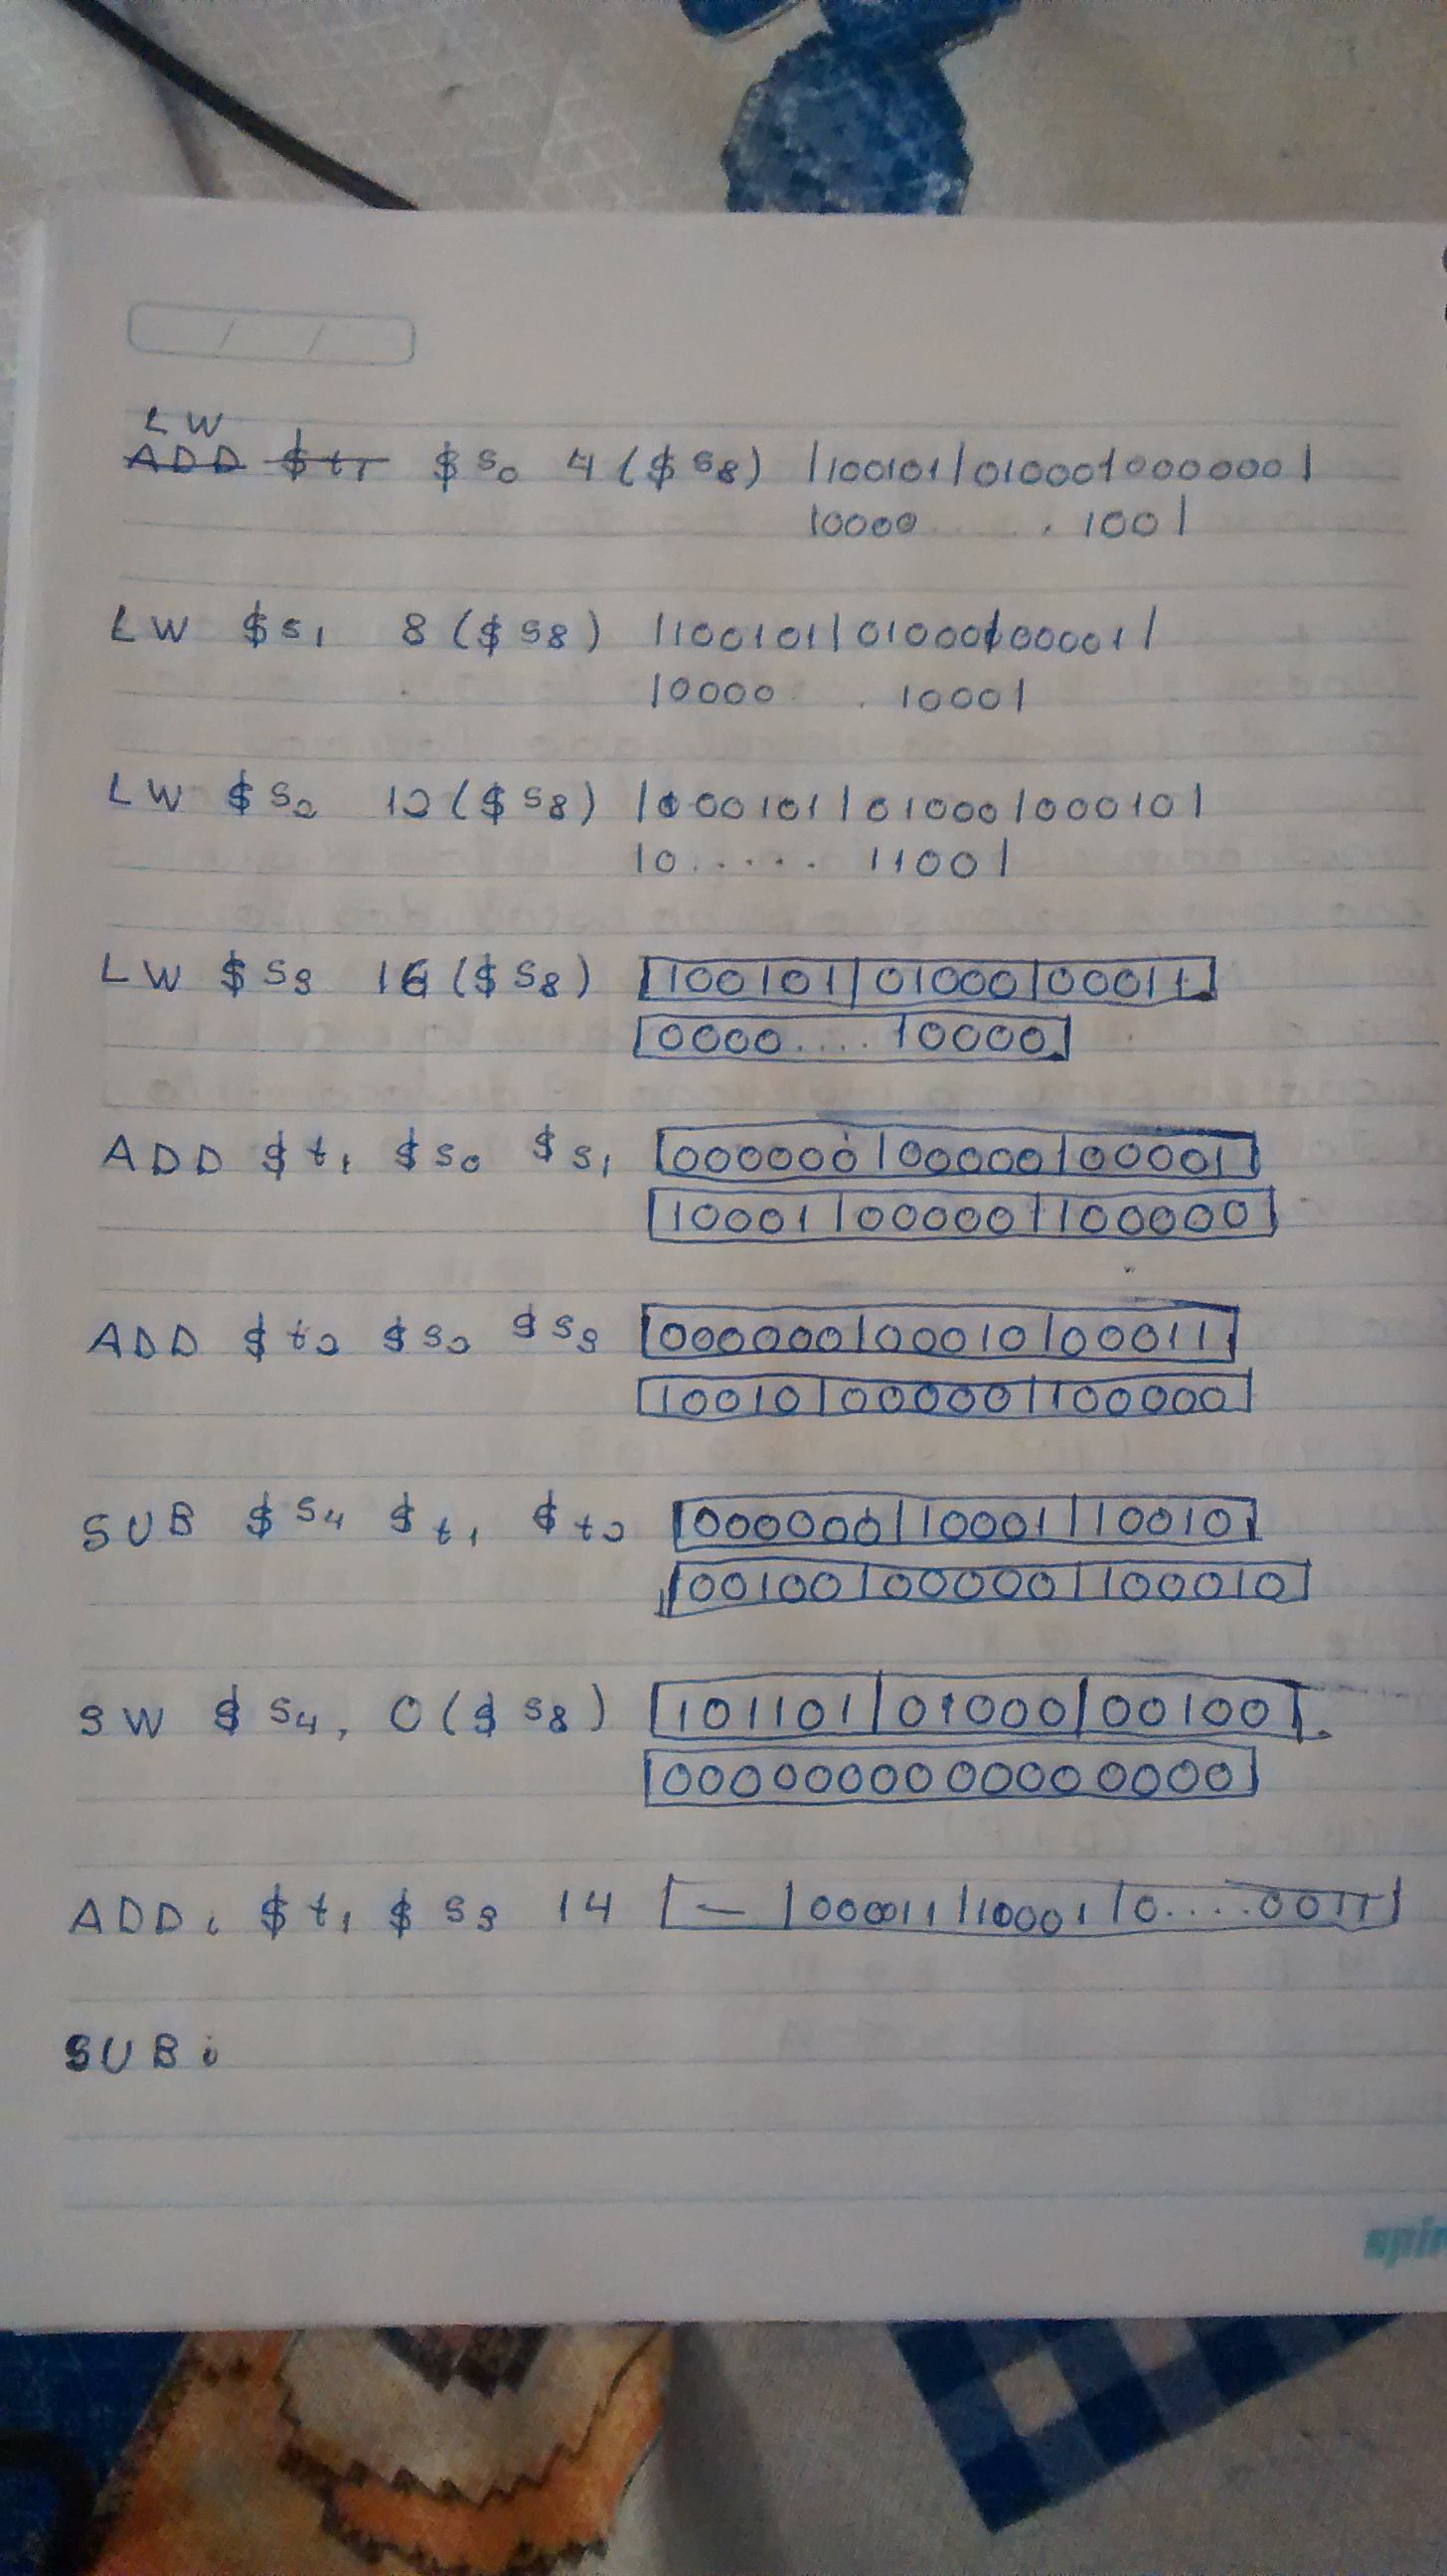 / /
LW
ADD $t1 $s0 4($s8) |100101|01000|000000|
|0000 . 100|
LW $s1 8($s8) |100101|01000|00001|
|0000 . 1000|
LW $s2 12($s8) |000101|01000|00010|
|0..... 1100|
LW $s3 16($s8) |100101|01000|00011|
|0000....10000|
ADD $t1 $s0 $s1 |000000|00000|00001|
|10001|00000|100000|
ADD $t2 $s2 $s3 |000000|00010|00011|
|10010|00000|100000|
SUB $s4 $t1 $t2 |000000|10001|10010|
|00100|00000|100010|
SW $s4, 0($s8) |101101|01000|00100|
|0000000000000000|
ADDi $t1 $s3 14 |—|000011|10001|0....0011|
SUBi